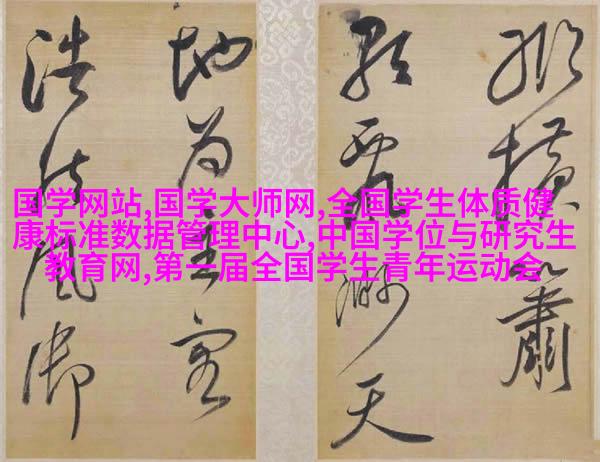 国学网站,国学大师网,全国学生体质健
康标准数据管理中心,中国学位与研究生
教育网,第一届全国学生青年运动会
横
天
地为主
浩風御